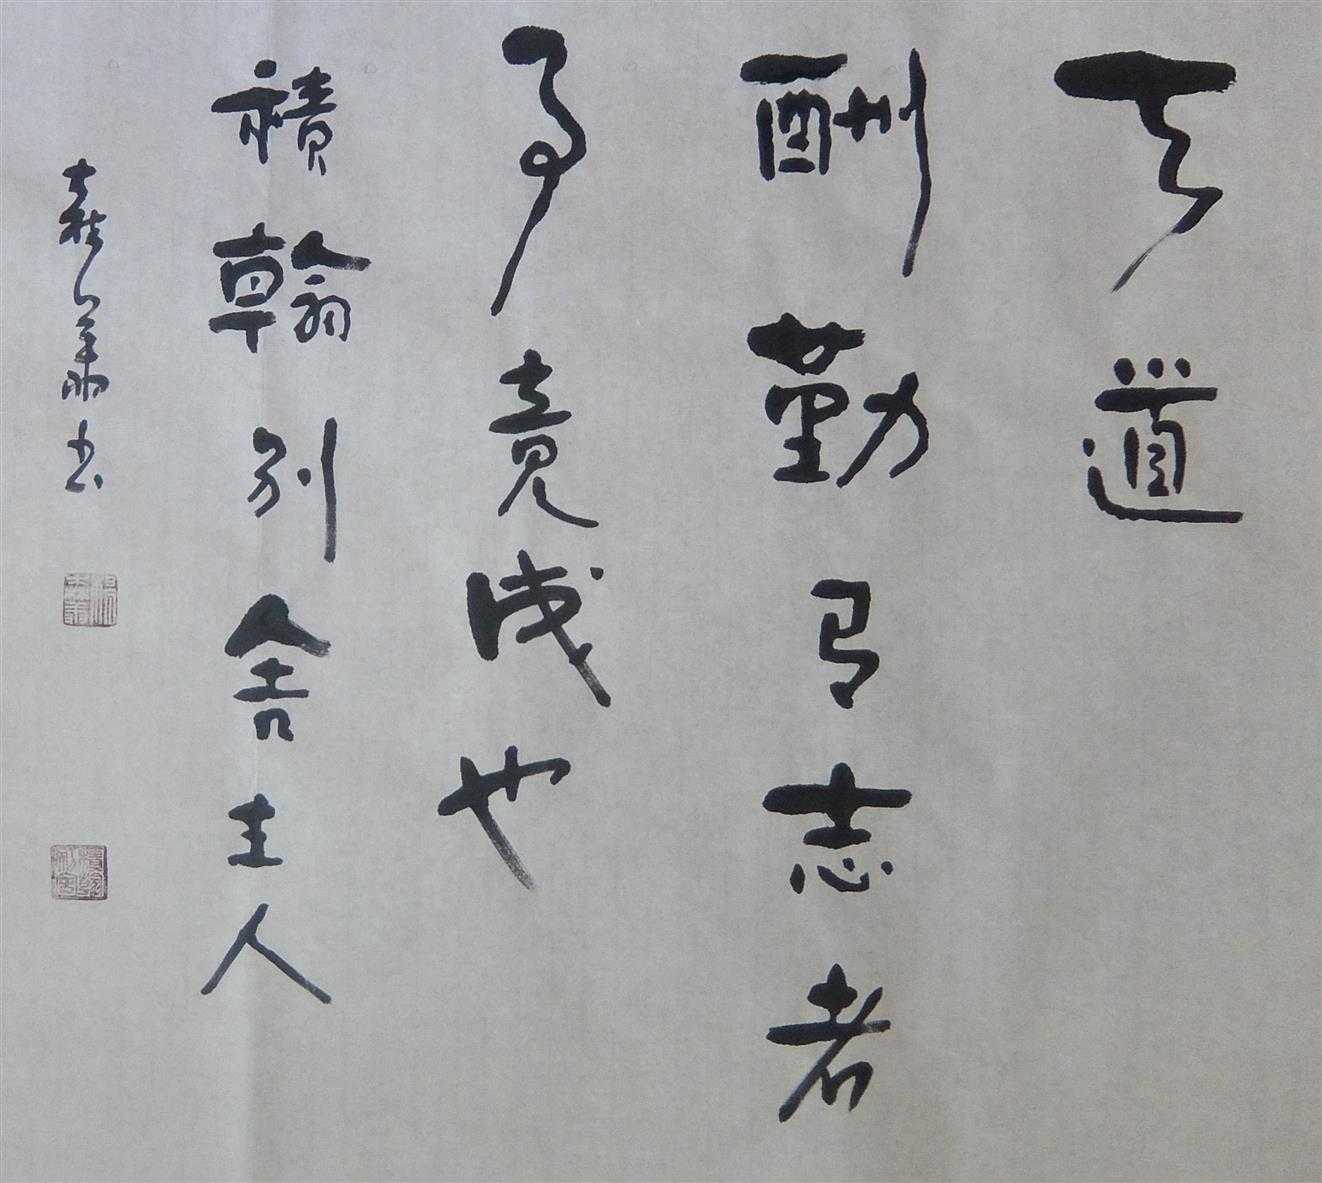 天道
酬勤有志者
事竟成也
積翰别舍主人
書